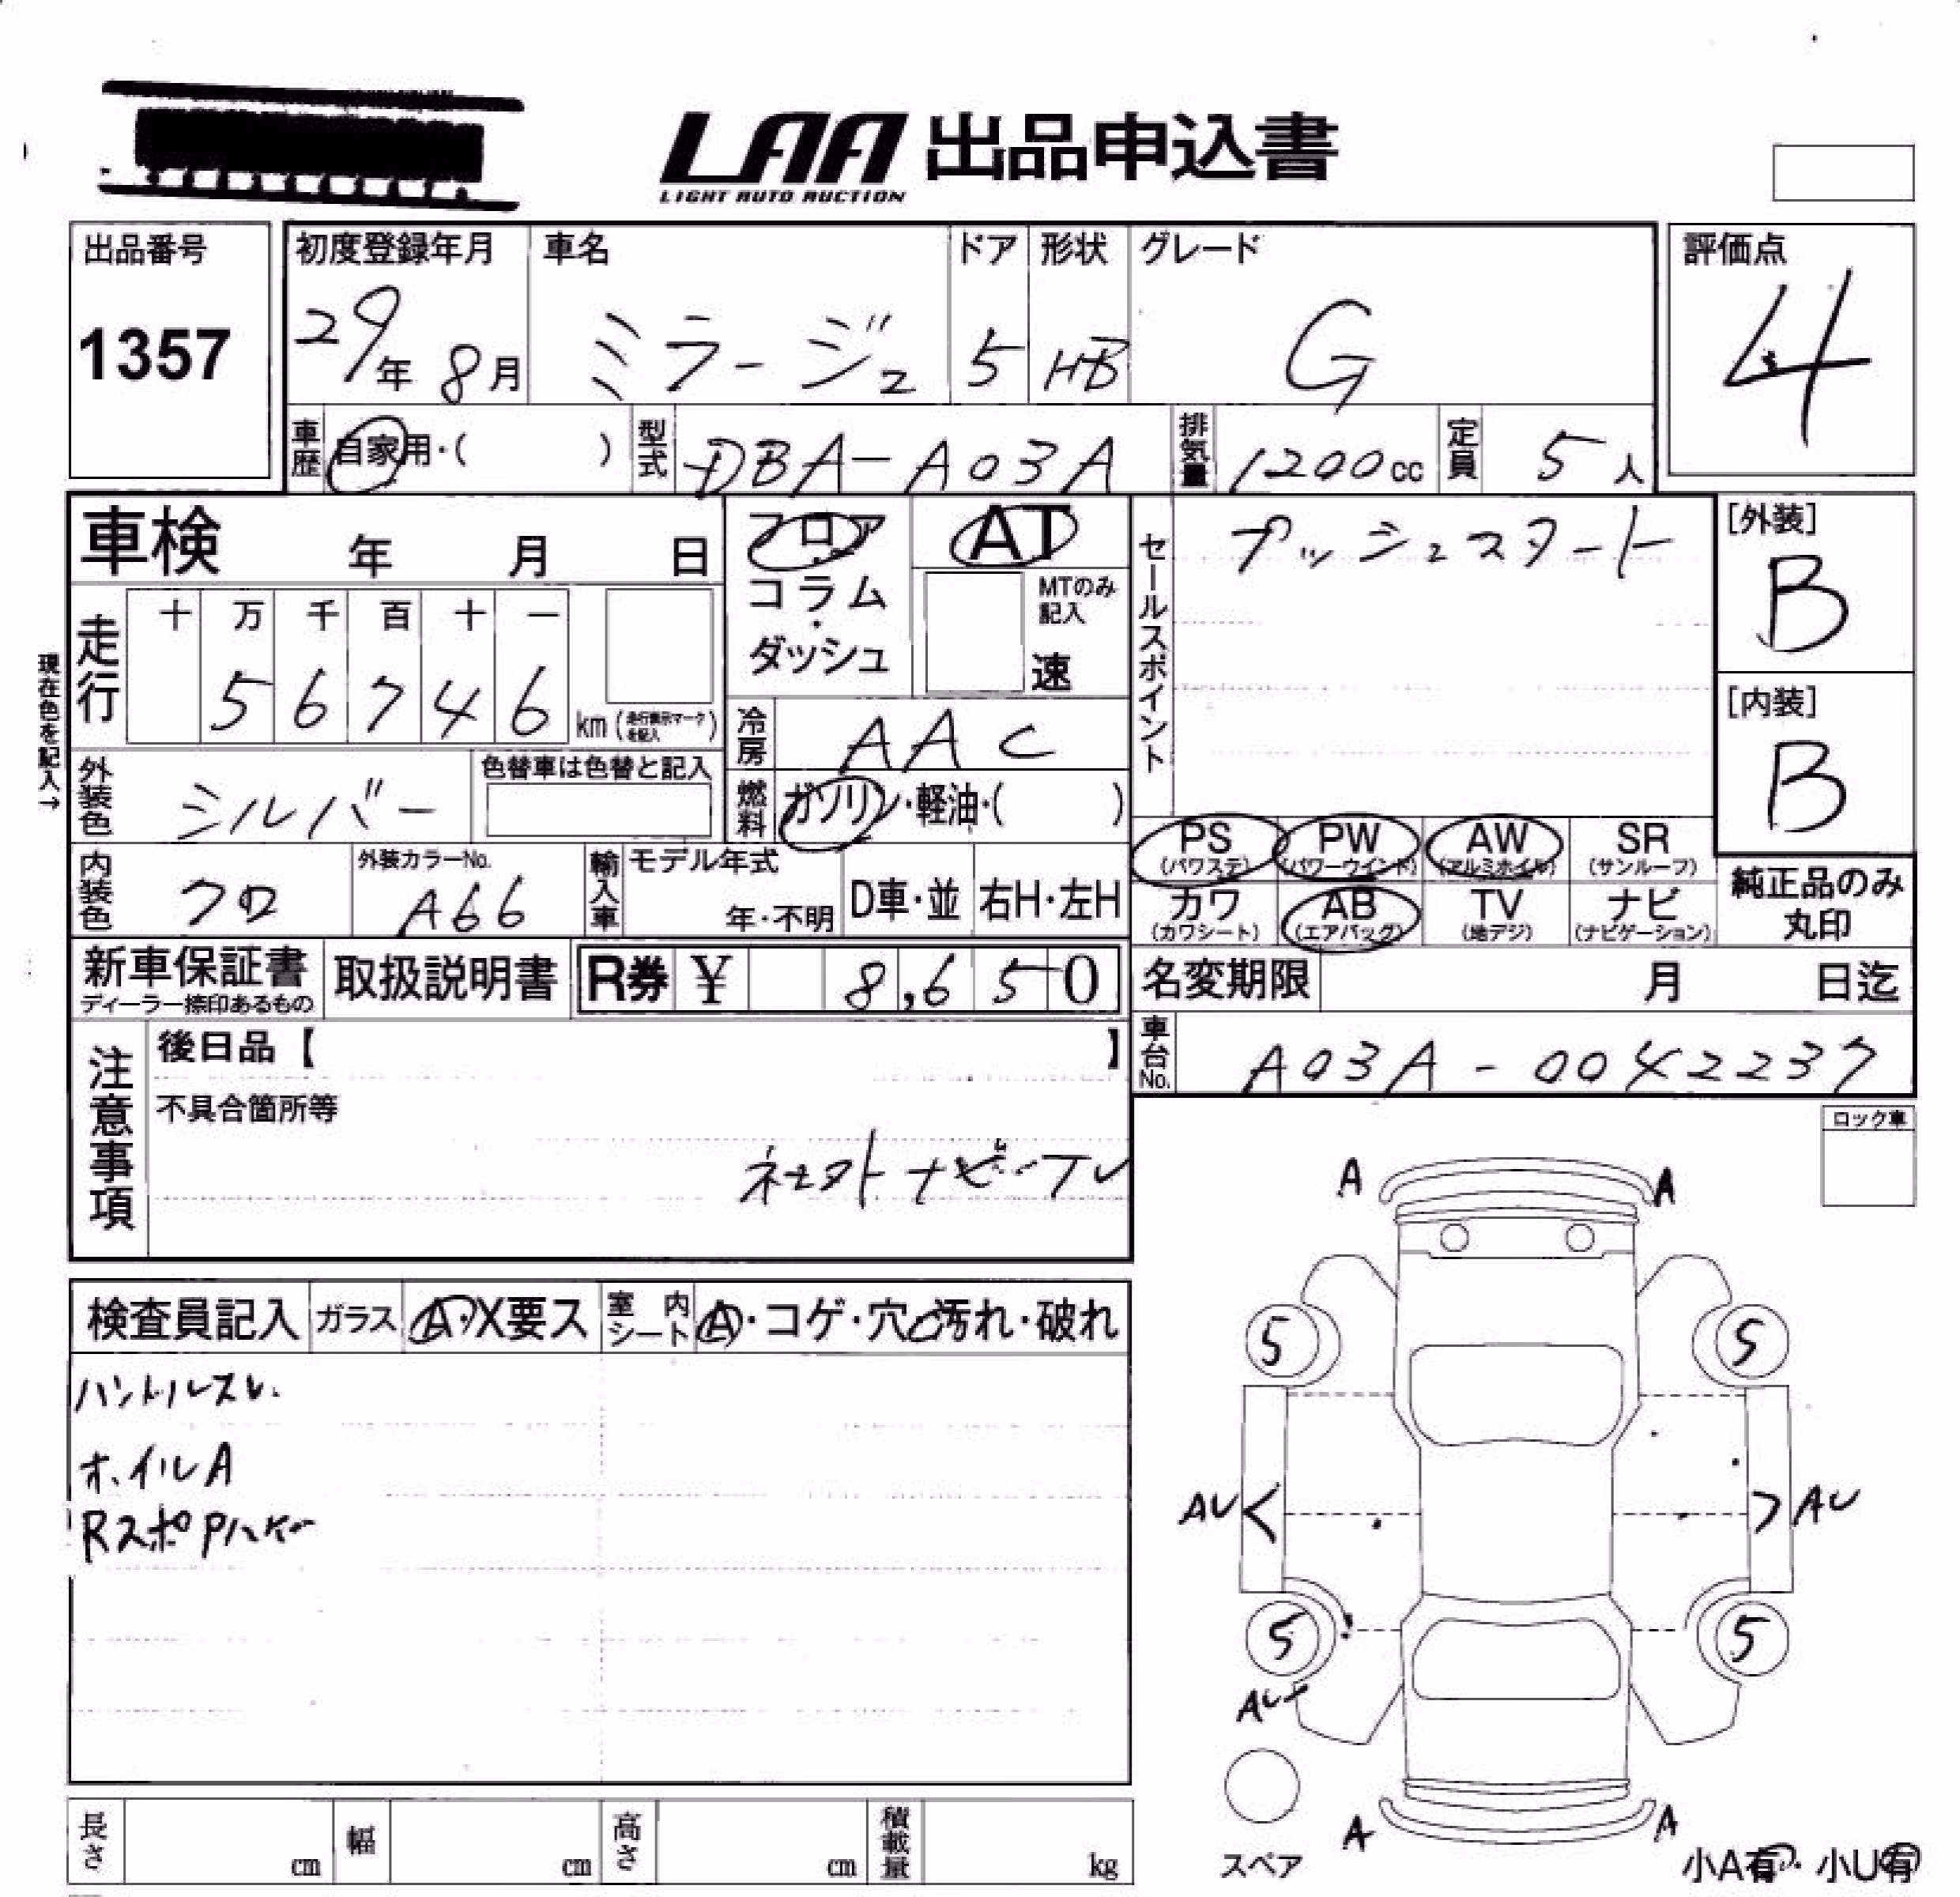 LAA 出品申込書
LIGHT AUTO AUCTION
出品番号
1357
初度登録年月 車名 ドア 形状 グレード
29年 8月 ミラージュ 5 HB G
評価点
4
車歴 自家用・( ) 型式 DBA-A03A 排気量 1200cc 定員 5人
車検 年 月 日
フロア・コラム・ダッシュ
AT
MTのみ記入
速
セールスポイント
プッシュスタート
[外装]
B
[内装]
B
現在色を記入→
走行 十 万 千 百 十 一
5 6 7 4 6 km (走行表示マークを記入)
冷房 AAC
外装色 シルバー 色替車は色替と記入
燃料 ガソリン・軽油・( )
PS (パワステ) PW (パワーウインド) AW (アルミホイル) SR (サンルーフ)
カワ (カワシート) AB (エアバッグ) TV (地デジ) ナビ (ナビゲーション)
純正品のみ丸印
内装色 クロ 外装カラーNo. A66 輸入車 モデル年式 年・不明 D車・並 右H・左H
新車保証書 ディーラー捺印あるもの 取扱説明書 R券 ¥ 8,650
名変期限 月 日迄
車台No. A03A-0042237
注意事項
後日品【 】
不具合箇所等
ナビ-TV
ロック車
検査員記入 ガラス A・X要ス 室内シート A・コゲ・穴・汚れ・破れ
ハンドルスレ
ホイルA
Rスポ
A A
5 5
AU AU
5 5
AU
A A
スペア
小A有・小U有
長さ cm 幅 cm 高さ cm 積載量 kg